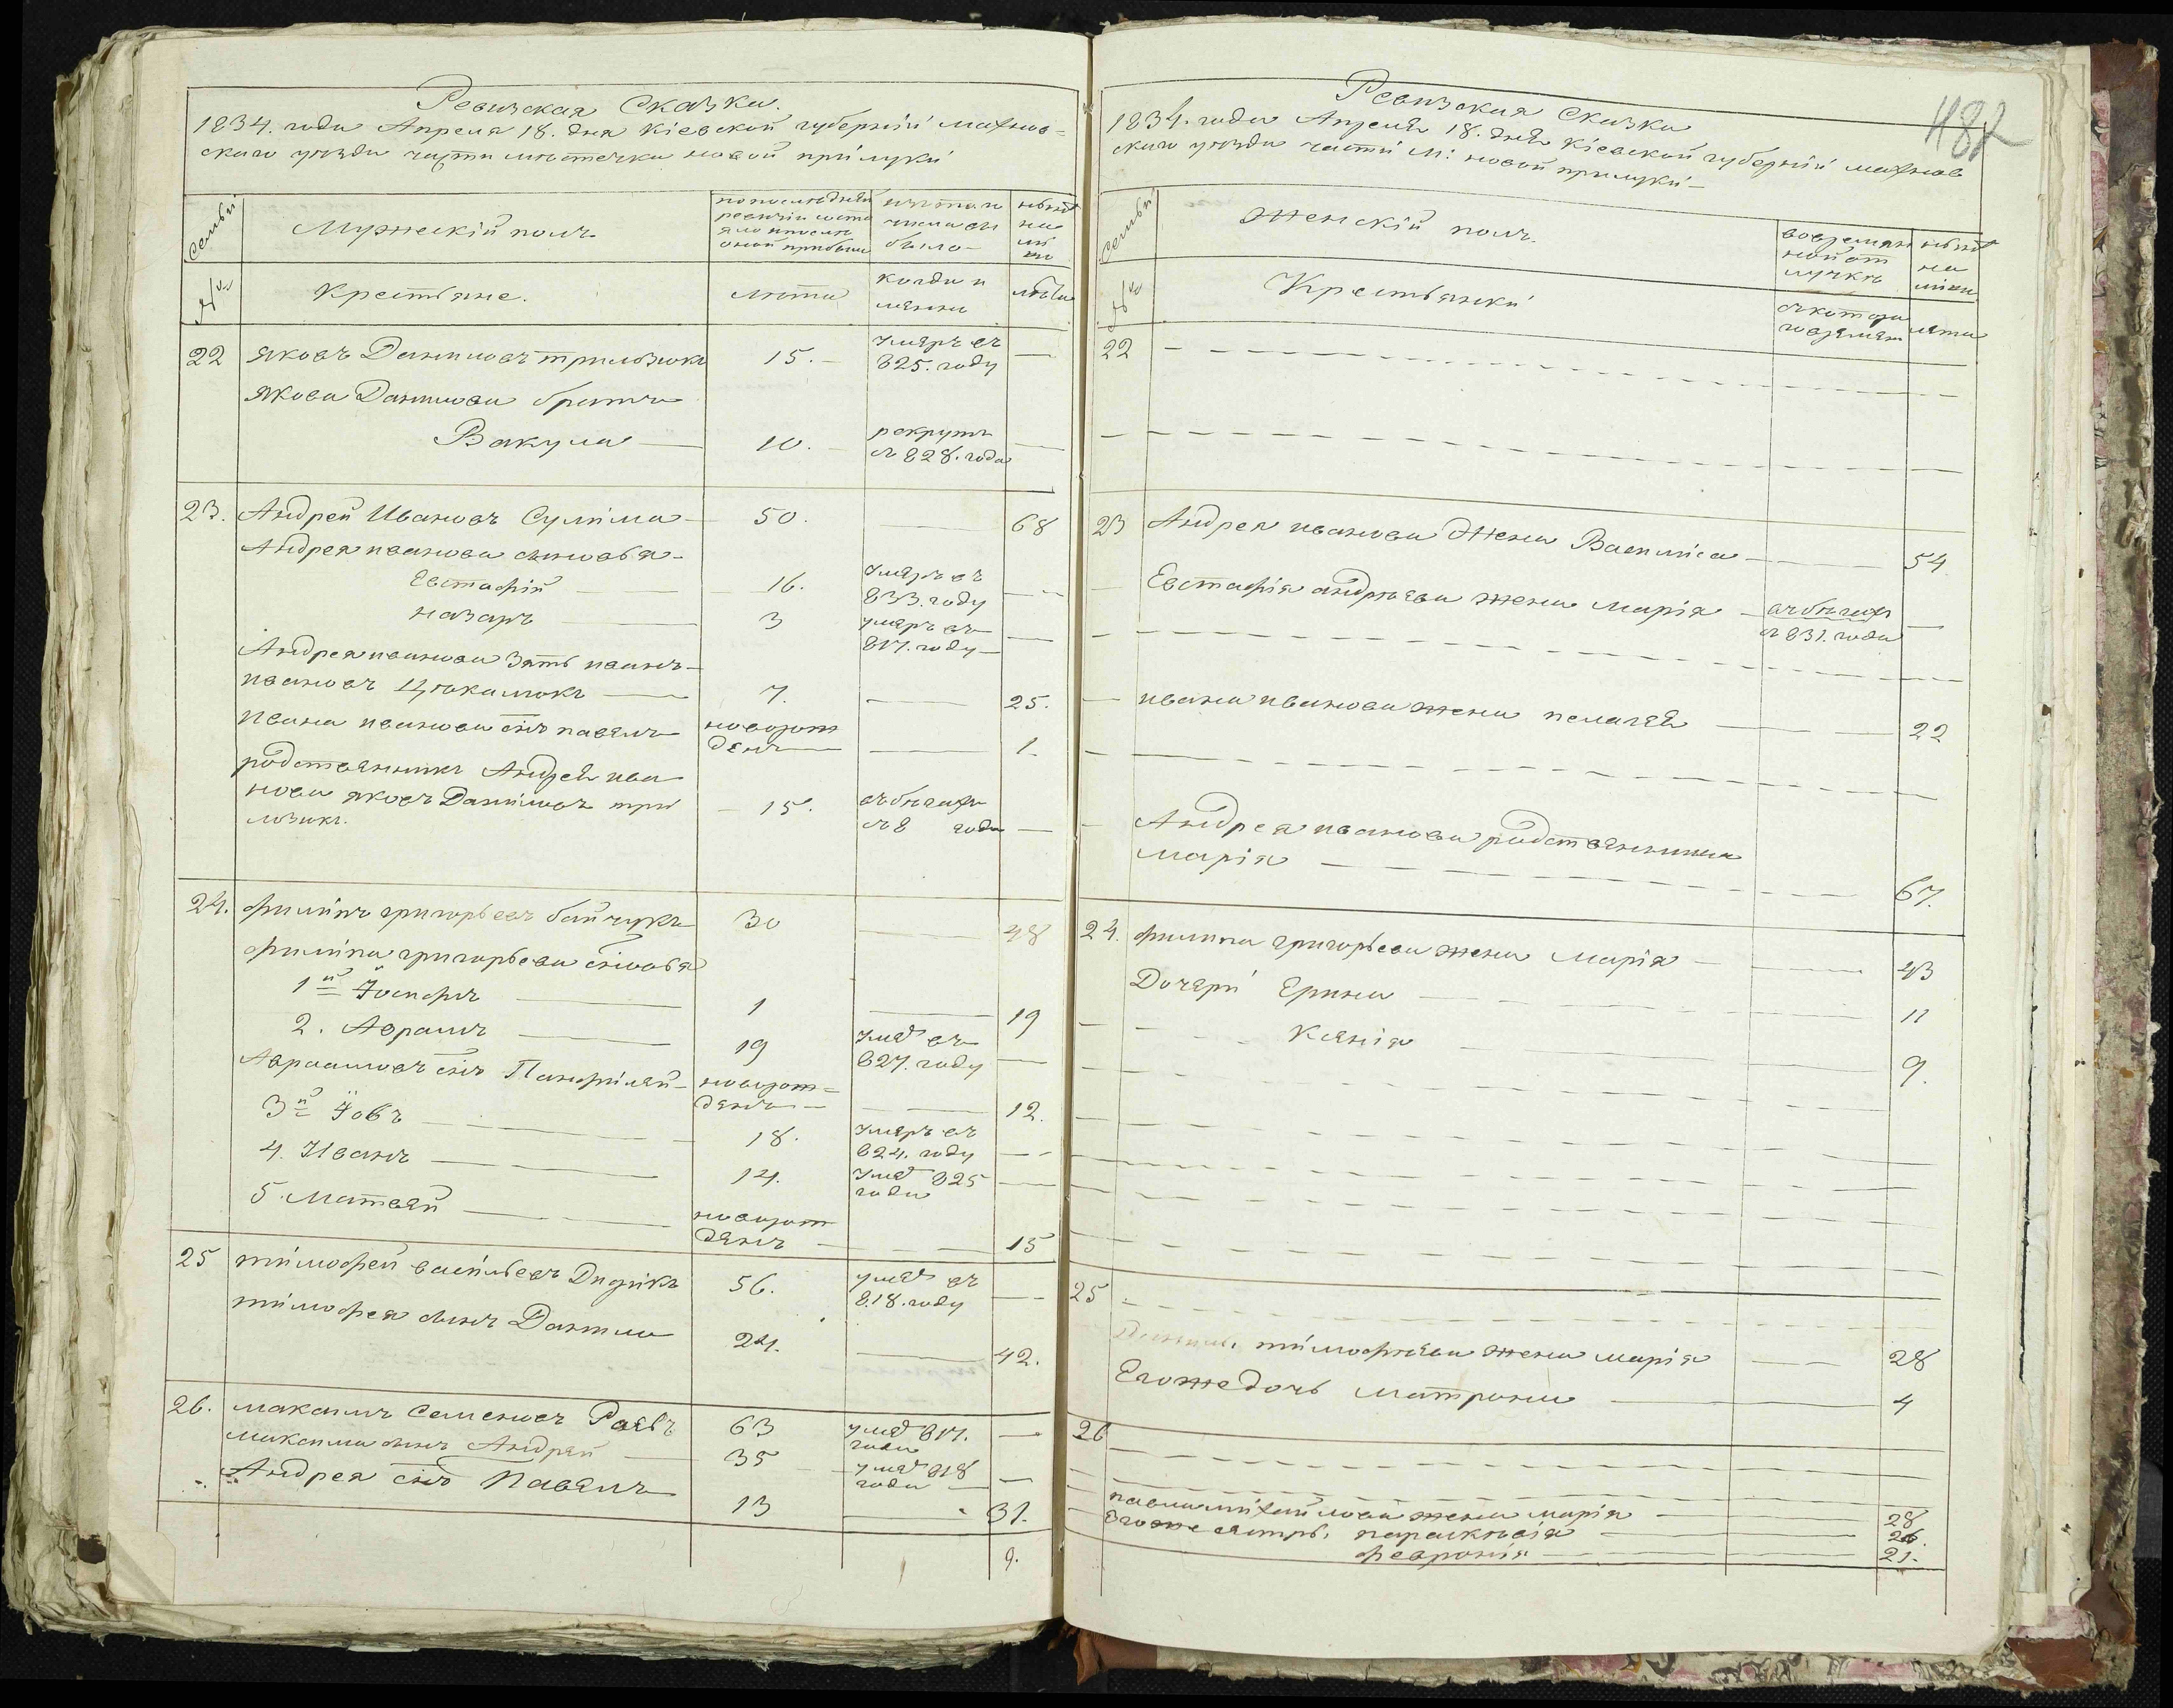 Ревизская Сказка.
1834. года Апреля 18. дня Кіевской губерніи махнов=
скаго уезда части местечка новой прилуки
семьи
Мужескій полъ
по последней
ревизіи состо
яло и после
оной прибыло
изъ того
числа вы
было
ныне
на
ли
цо
№
Крестьяне.
лета
когда и
менно
лета
22 яковъ Даниловъ трильзюкъ 15. умеръ въ 825. году —
якова Данилова братъ
Вакула — 10. рекрутъ
съ 828. года —
23. Андрей Ивановъ Сулима 50. — 68
Андрея иванова сыновья
Евстафій — 16. умеръ въ
833. году —
назаръ — 3 умеръ въ
817. году —
Андрея иванова зять иванъ
ивановъ — 7. — 25.
ивана иванова снъ павелъ новорож
денъ — 1
родственникъ Андрея ива
нова яковъ Даниловъ три 15. въ бегахъ
лзикъ. съ 8 года —
24. филипъ григорьевъ байчукъ 30 — 48
филипа григорьева сновья
1й Іосифъ — 1 — 19
2. Аврамъ — 19 уме въ
827. году —
Авраамовъ снъ Панфилей новорож=
денъ — 12.
3й Іовъ — 18. умеръ въ
824. году —
4. Иванъ — 14. уме 825
года —
5. Матвей — новорож
денъ — 15
25 тимофей васильевъ Дидикъ 56. уме въ
818. году —
тимофея сынъ Данило 24. — 42.
26. максимъ семеновъ Раевъ 63 уме 817.
года —
максима сынъ Андрей 35 уме 818
года —
Андрея снъ Павелъ 13 — 31.
9.
482
Ревизская Сказка
1834. года Апреля 18. дня Кіевской губерніи махнов
скаго уезда части м: новой прилуки
семьи
Женскій полъ.
во времян
ной от
лучке
ныне
на
лицо
№
Крестьянки
съ котора
го времяни
лета
22 —
23 Андрея иванова жена Василиса — 54
Евстафія андреева жена марія въ бегахъ —
съ 831. года
ивана иванова жена пелагея — 22
Андрея иванова родственница
марія — 67.
24. филипа григорьева жена марія — 43
Дочери Ерина — 11
Ксенія — 9.
25 —
Данила тимофеева жена марія — 28
Егоже дочь матрона — 4
26 —
павла михайлова жена марія — 28
Егоже сестры параскевія — 26.
феврония — 21.